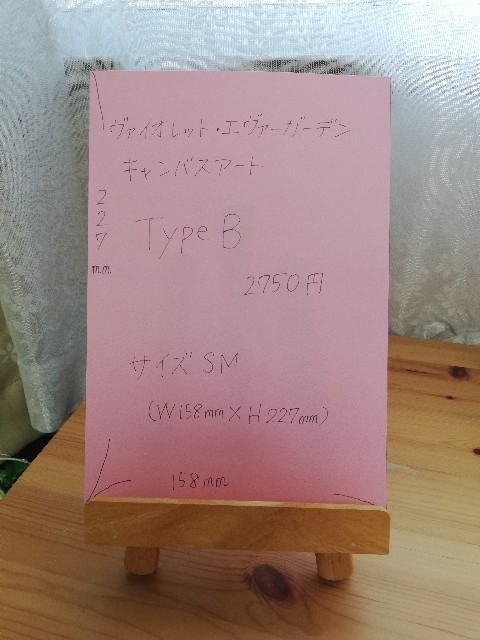 ヴァイオレット・エヴァーガーデン
キャンバスアート
227mm
Type B
2750円
サイズ SM
(W158mm×H227mm)
158mm